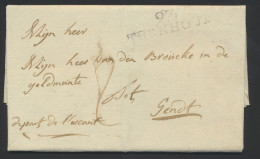 Mijn heer
Mijn heer van den Broucke in de
geldmunte
tot
Gendt
depart de l'escaut